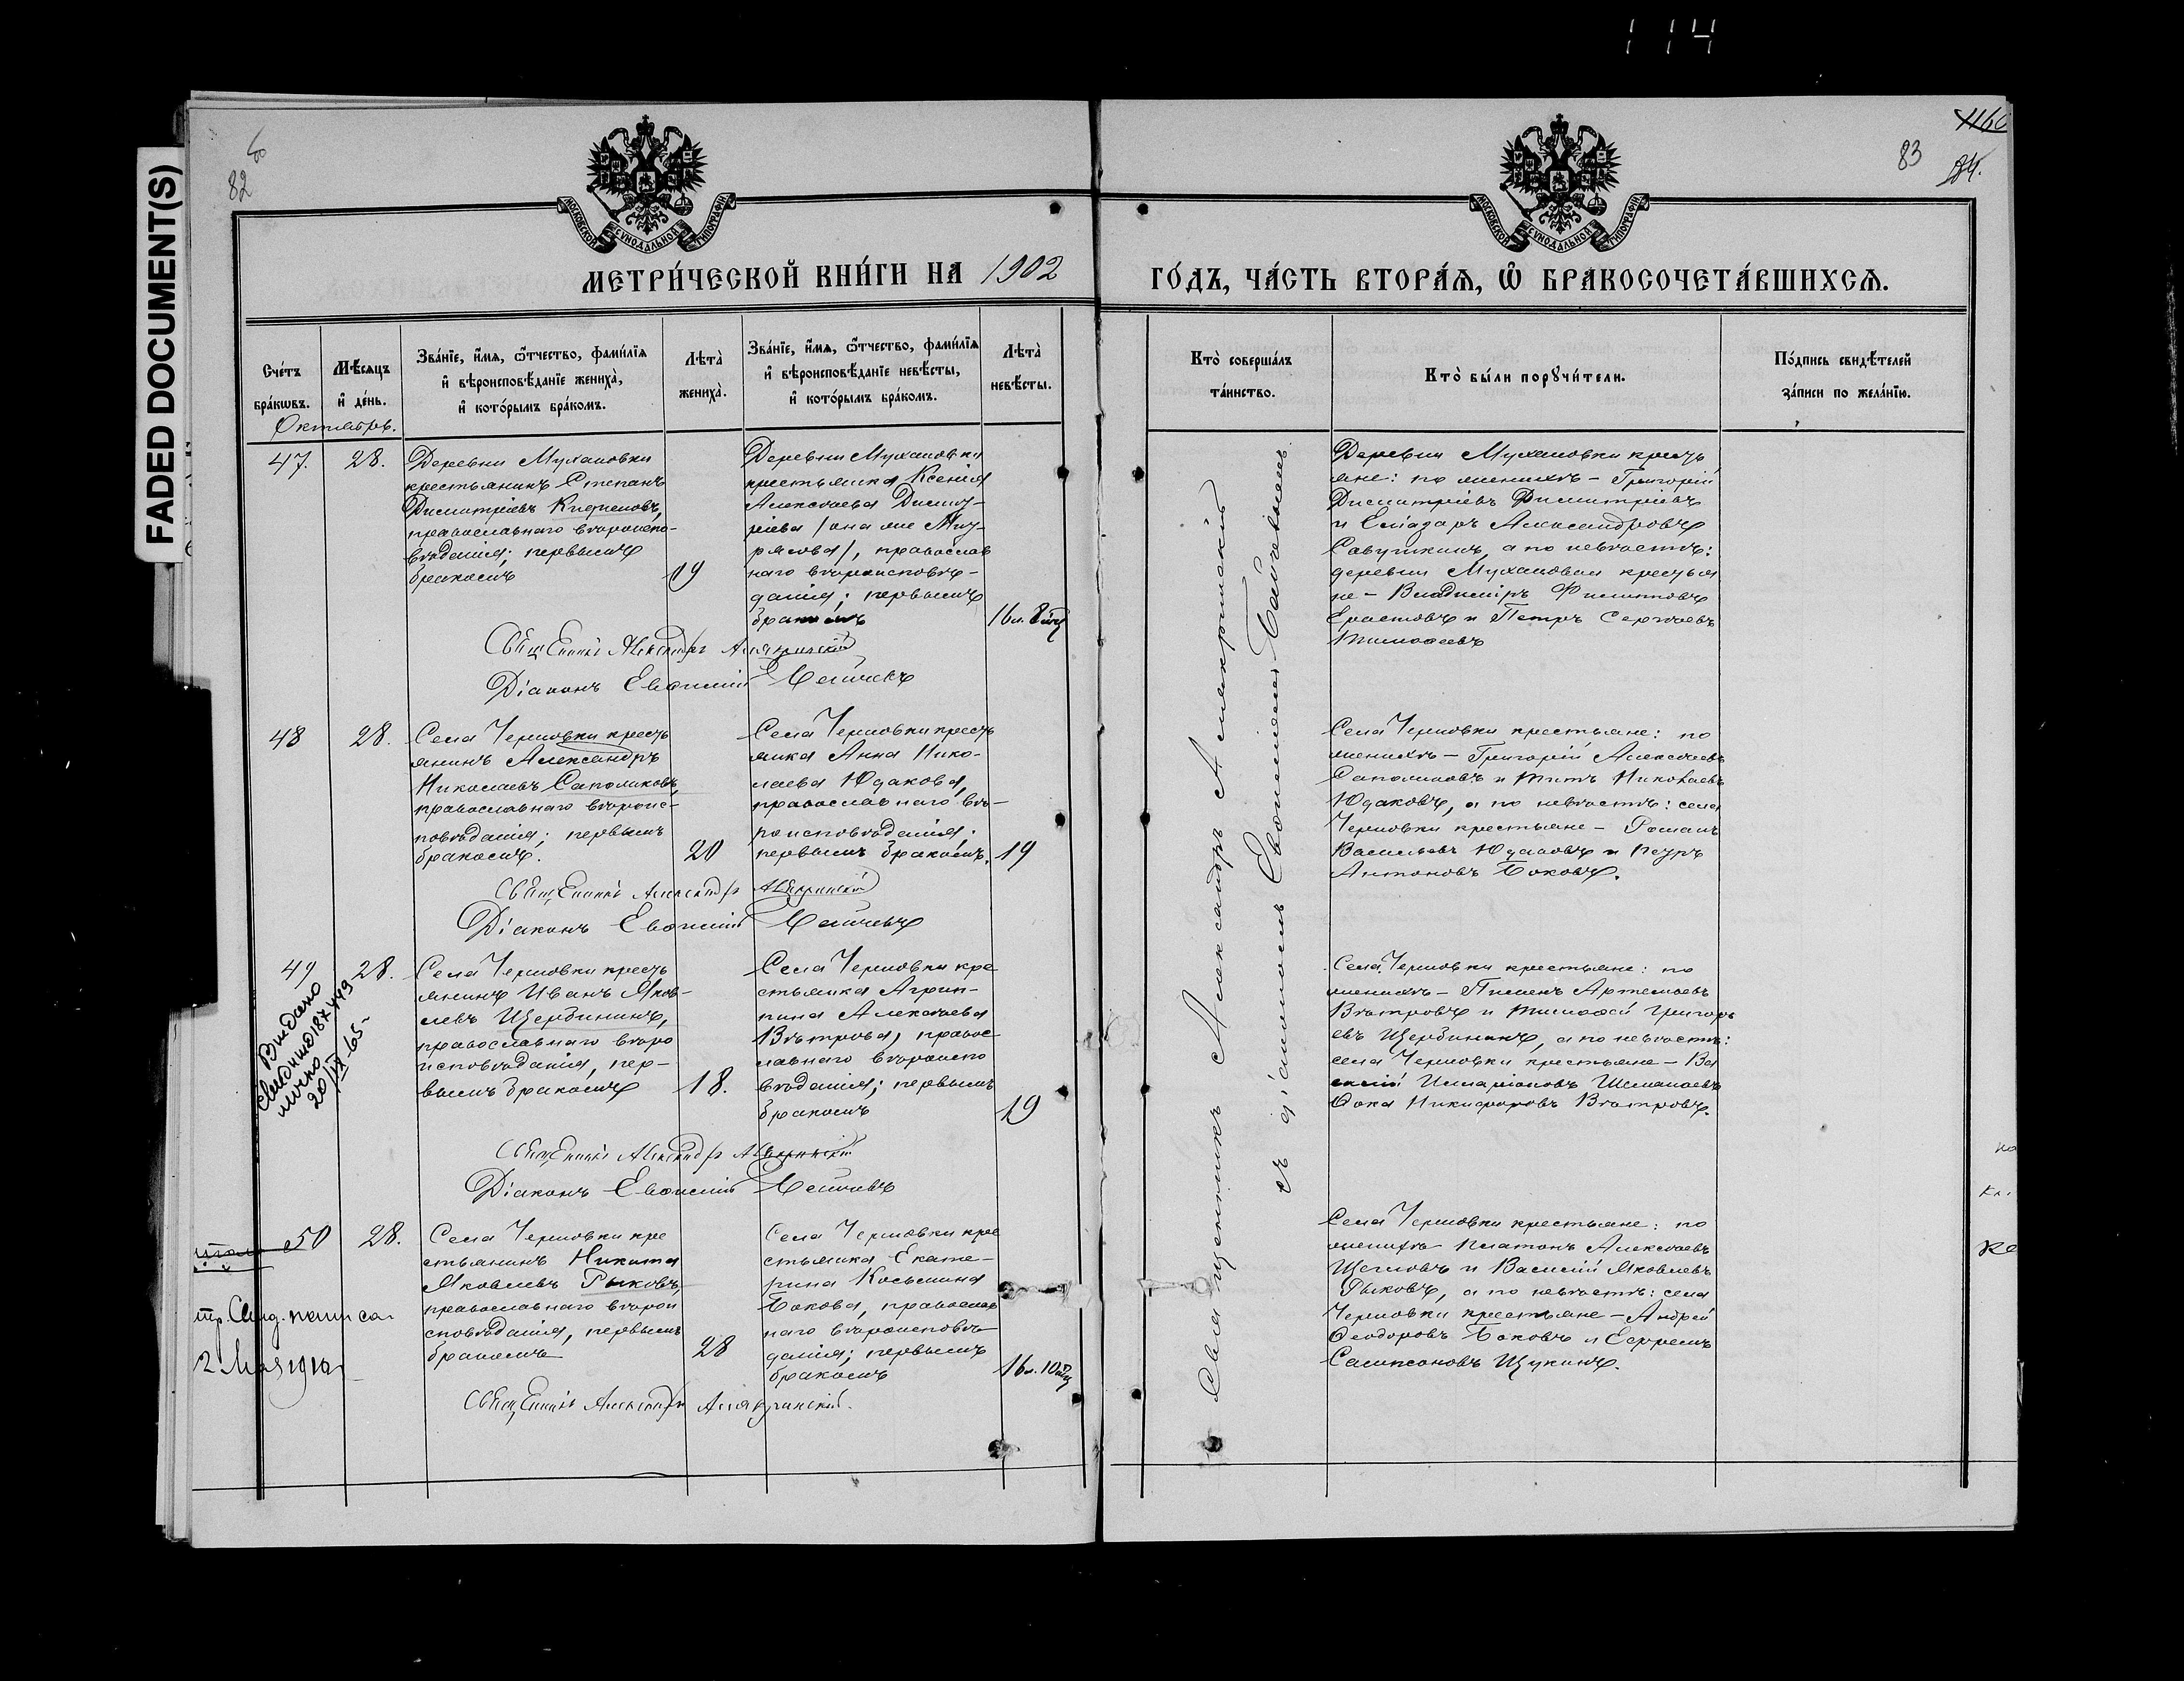 114
FADED DOCUMENT(S)
82
83
84.
МОСКОВСКОЙ СѴНОДАЛЬНОЙ ТИПОГРАФІИ
МОСКОВСКОЙ СѴНОДАЛЬНОЙ ТИПОГРАФІИ
МЕТРИ́ЧЕСКОЙ КНИ́ГИ НА 1902
ГО́ДЪ, ЧА́СТЬ ВТОРА́Ѧ, Ѽ БРАКОСОЧЕТА́ВШИХСѦ.
Сче́тъ
бра́кѡвъ.
Мѣ́сѧцъ
и҆ де́нь.
Зва́нїе, и҆́мѧ, ѻ҆́тчество, фами́лїѧ
и҆ вѣроисповѣ́данїе жениха̀,
и҆ кото́рымъ бра́комъ.
Лѣта̀
жениха̀.
Зва́нїе, и҆́мѧ, ѻ҆́тчество, фами́лїѧ
и҆ вѣроисповѣ́данїе невѣ́сты,
и҆ кото́рымъ бра́комъ.
Лѣта̀
невѣ́сты.
Кто̀ соверша́лъ
та́инство.
Кто̀ бы́ли порꙋчи́тели.
По́дпись свидѣ́телей
за́писи по жела́нїю.
Октябрь.
47.
28.
Деревни Мухановки
крестьянинъ Степанъ
Димитріевъ
православнаго вѣроиспо-
вѣданія; первымъ
бракомъ
19
Деревни Мухановки
крестьянка Ксенія
Алексѣева Димит-
ріева /она же
/, православ
наго вѣроисповѣ-
данія; первымъ
бракомъ
16 л. 8 мц
Деревни Мухановки кресть
яне: по женихѣ – Григорій
Димитріевъ Димитріевъ
и Елiазаръ Александровъ
Савушкинъ, а по невѣстѣ:
деревни Мухановки крестья
не – Владиміръ Филипповъ
Ерастовъ и Петръ Сергѣевъ
Тимоѳеевъ
Священникъ Александръ Алякринскій
Діаконъ Евѳимій
48
28.
Села Черновки кресть
янинъ Александръ
Николаевъ Сапожниковъ,
православнаго вѣроис-
повѣданія; первымъ
бракомъ.
20
Села Черновки кресть
янка Анна Нико-
лаева Юдакова,
православнаго вѣ-
роисповѣданія;
первымъ бракомъ.
19
Села Черновки крестьяне: по
женихѣ – Григорій Алексѣевъ
Сапожниковъ и Титъ Николаевъ
Юдаковъ, а по невѣстѣ: села
Черновки крестьяне – Романъ
Васильевъ Юдаковъ и Петръ
Антоновъ Боковъ.
Священникъ Александръ Алякринскій
Діаконъ Евѳимій
49
28.
Выдано
20/IX-65-
Села Черновки кресть
янинъ Иванъ Яков-
левъ Щербининъ,
православнаго вѣро
исповѣданія, пер-
вымъ бракомъ
18.
Села Черновки кре
стьянка Агрип-
пина Алексѣева
Вѣтрова, правос
лавнаго вѣроиспо
вѣданія; первымъ
бракомъ
19
Села Черновки крестьяне: по
женихѣ – Пименъ Артемьевъ
Вѣтровъ и Тимоѳей Григорь
евъ Щербининъ, а по невѣстѣ:
села Черновки крестьяне – Ва
силій Иларіоновъ
Ѳока Никифоровъ Вѣтровъ.
Священникъ Александръ Алякринскій
Діаконъ Евѳимій
50
28.
2 Мая
Села Черновки кре
стьянинъ Никита
Яковлевъ Рыковъ,
православнаго вѣрои
сповѣданія, первымъ
бракомъ
28
Села Черновки кре
стьянка Екате-
рина Косьмина
Бокова, православ
наго вѣроисповѣ
данія; первымъ
бракомъ
16 л. 10 мц
Села Черновки крестьяне: по
женихѣ Платонъ Алексѣевъ
Щегловъ и Василій Яковлевъ
Рыковъ, а по невѣстѣ: села
Черновки крестьяне – Андрей
Ѳеодоровъ Боковъ и Ефремъ
Сампсоновъ Щукинъ.
Священникъ Александръ Алякринскій.
Священникъ Александръ Алякринскій
съ діакономъ Евѳиміемъ